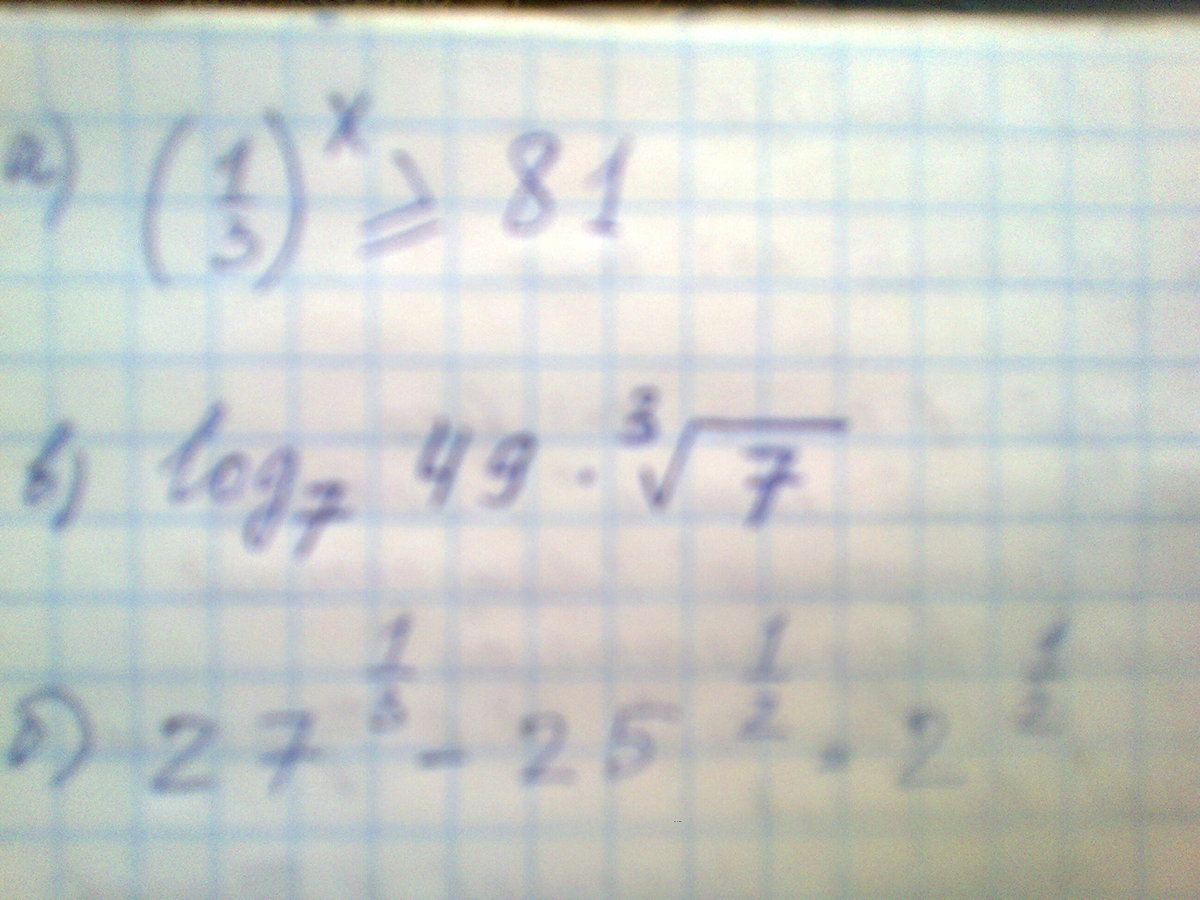 а) (1/3)^x ⩾ 81
в) log₇ 49 · ∛7
б) 27^(1/3) - 25^(1/2) · 2^(1/2)